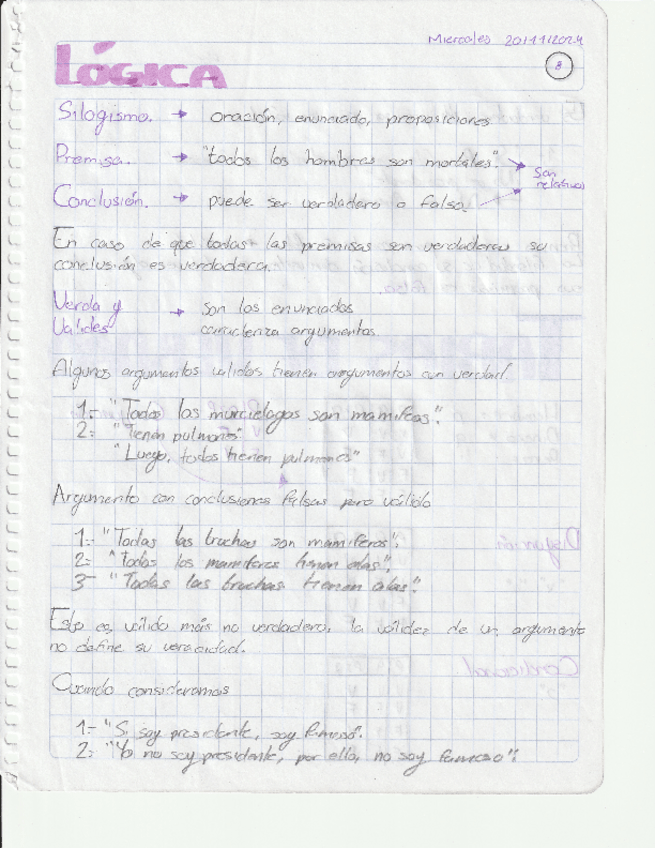 Miercoles 20/11/2024
8
LÓGICA
Silogismo. → oración, enunciado, proposiciones
Premisa. → "todos los hombres son mortales".
Son
relativos
Conclusión. → puede ser verdadero o falso.
En caso de que todas las premisas son verdaderas su
conclusión es verdadera.
Verda y → Son los enunciados
Valides caracteriza argumentos.
Algunos argumentos validos tienen aregumentos con verdad.
1:- "Todos los murcielagos son mamiferos".
2: "Tienen pulmones"
"Luego, todos tienen pulmones"
Argumento con conclusiones falsas pero válido
1:- "Todas las truchas son mamiferos",
2:- "Todos los mamiferos tienen alas",
3- "Todas las truchas tienen alas".
Esto es válido más no verdadero, la válidez de un argumento
no define su veracidad.
Cuando consideramos
1:- "Si soy presidente, soy famoso".
2: "Yo no soy presidente, por ello, no soy famoso".